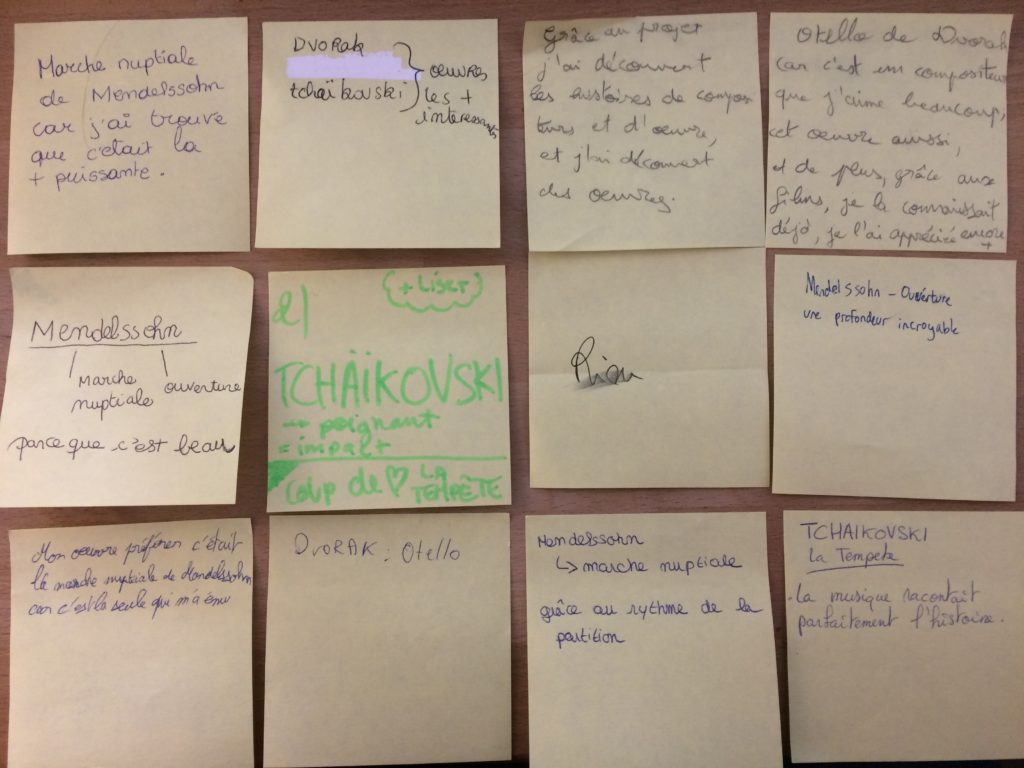 Marche nuptiale
de Mendelssohn
car j'ai trouvé
que c'était la
+ puissante.
DVORAK
tchaïkovski
œuvres
les +
intéressantes
Grâce au projet
j'ai découvert
les histoires de compos-
iteurs et d'œuvre,
et j'ai découvert
des œuvres.
Otello de Dvorak
car c'est un compositeur
que j'aime beaucoup,
cet œuvre aussi,
et de plus, grâce aux
films, je la connaissait
déjà, je l'ai apprécié encore
+
Mendelssohn
marche
nuptiale
ouverture
parce que c'est beau
(+ Liszt)
2)
TCHAÏKOVSKI
→ poignant
= impact
Coup de ♡ LA
TEMPÊTE
Rien
Mendelssohn - Ouverture
une profondeur incroyable
Mon œuvre préférer c'était
la marche nuptiale de Mendelssohn
car c'est la seule qui m'a ému
DVORAK : Otello
Mendelssohn
↳ marche nuptiale
grâce au rythme de la
partition
TCHAIKOVSKI
La Tempete
- La musique racontait
parfaitement l'histoire.